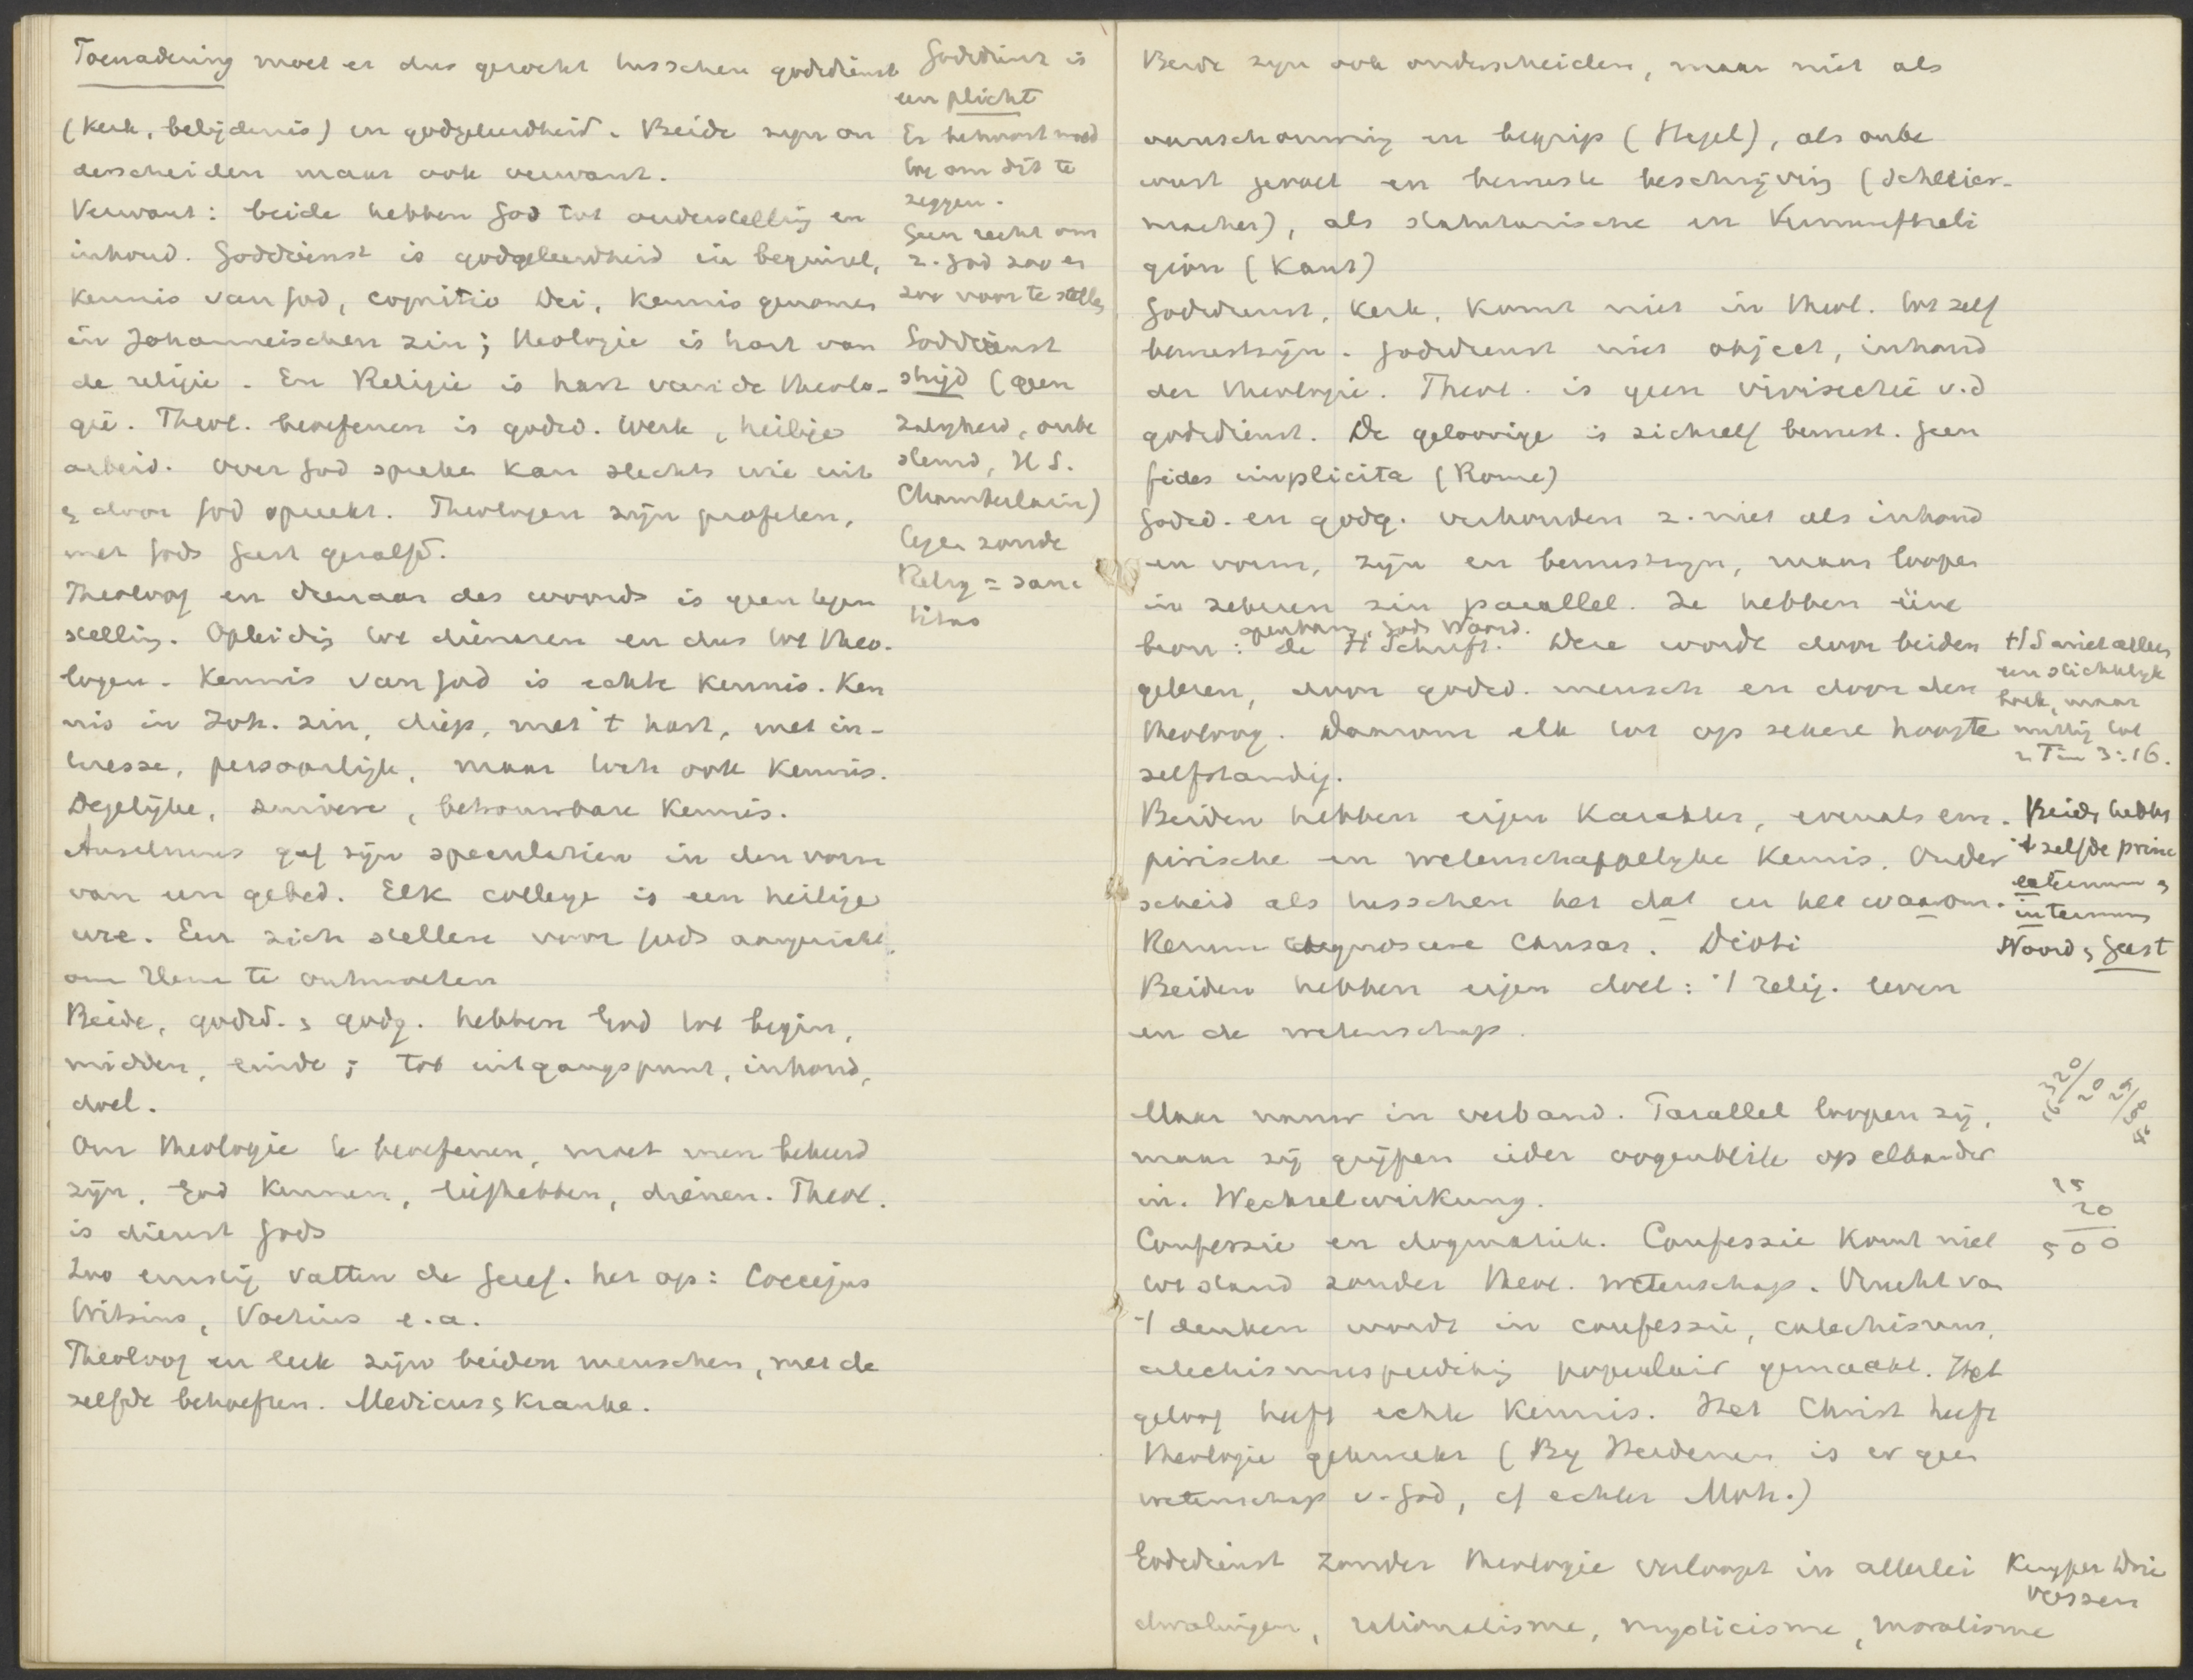 Toenadering moet er dus gezocht tusschen godsdienst
(Kerk, belijdenis) en godgeleerdheid. Beide zijn on
derscheiden maar ook verwant.
Verwant: beide hebben God tot onderstelling en
inhoud. Godsdienst is godgeleerdheid in beginsel,
Kennis van God, cognitio Dei, Kennis genomen
in Johanneischen zin; theologie is hart van
de religie. En Religie is hart van de theolo-
gie. Theol. beoefenen is godsd. werk, heilige
arbeid. Over God spreken kan slechts wie uit
& door God spreekt. Theologen zijn profeten,
met Gods Geest gezalfd.
Theoloog en dienaar des woords is geen tegen
stelling. Opleiding tot dienaren en dus tot theo-
logen. Kennis van God is echte kennis. Ken
nis in Joh. zin, diep, met 't hart, met in-
teresse, persoonlijk, maar toch ook Kennis.
Degelijke, zuivere, betrouwbare Kennis.
Anselmus gaf zijn speculatien in den vorm
van een gebed. Elk college is een heilige
ure. Een zich stellen voor Gods aangezicht,
om Hem te ontmoeten
Beide, godsd. & godg. hebben God tot begin,
midden, einde; tot uitgangspunt, inhoud,
doel.
Om theologie te beoefenen, moet men bekeerd
zijn, God kennen, liefhebben, dienen. Theol.
is dienst Gods
Zoo ernstig vatten de Geref. het op: Coccejus
Witsius, Voetius e.a.
Theoloog en leek zijn beiden menschen, met de
zelfde behoeften. Medicus & Kranke.
Godsdienst is
een plicht
Er behoort moed
toe om dit te
zeggen.
Geen recht om
z. God zoo en
zoo voor te stellen
Godsdienst
strijd (geen
zaligheid, onbe
stemd, H S.
Chamberlain)
tegen zonde
Relig = sanc
titas
Beide zijn ook onderscheiden, maar niet als
aanschouwing en begrip (Hegel), als onbe
wust gevoel en bewuste beschrijving (Schleier-
macher), als statutarische en Vernunftreli
gion (Kant)
Godsdienst, Kerk, komt niet in theol. tot zelf
bewustzijn. Godsdienst niet object, inhoud
der theologie. Theol. is geen vivisectie v.d
godsdienst. De geloovige is zichzelf bewust. Geen
fides implicita (Rome)
Godsd. en godg. verhouden z. niet als inhoud
en vorm, zijn en bewustzijn, maar loopen
in zekeren zin parallel. Ze hebben éene
openbaring, Gods Woord.
bron: de H Schrift. Deze wordt door beiden
gelezen, door godsd. mensch en door den
theoloog. Daarom elk tot op zekere hoogte
zelfstandig.
H S niet alleen
een stichtelijk
boek, maar
nuttig tot
2 Tim 3:16.
Beiden hebben eigen karakter, evenals em-
pirische en wetenschappelijke kennis. Onder
scheid als tusschen het dat en het waarom.
Rerum cognoscere causas. Dioti
Beiden hebben eigen doel: 't relig. leven
en de wetenschap.
Beide hebben
't zelfde princ
externum &
internum
Woord & Geest
Maar nauw in verband. Parallel loopen zij,
maar zij grijpen ieder oogenblik op elkander
in. Wechselwirkung.
25
20
500
Confessie en dogmatiek. Confessie komt niet
tot stand zonder theol. wetenschap. Vrucht van
't denken wordt in confessie, catechismus,
catechismusprediking populair gemaakt. Het
geloof heeft echte kennis. Het Christ heeft
theologie gekweekt (Bij Heidenen is er geen
wetenschap v. God, cf echter Moh.)
Godsdienst zonder theologie verloopt in allerlei
dwalingen, rationalisme, mysticisme, moralisme
Kuyper Drie
vossen